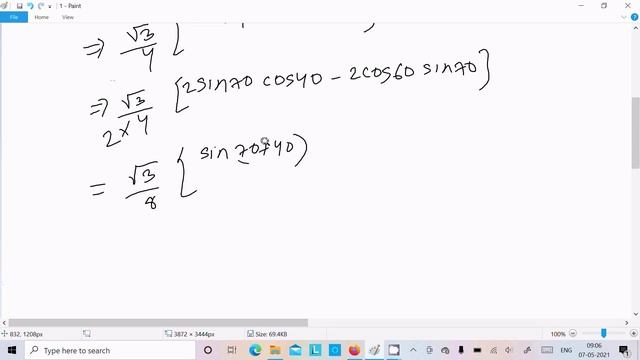 1 - Paint
File Home View
⇒ √3/4 [
⇒ √3/2×4 [2sin70 cos40 - 2cos60 sin70]
= √3/8 [sin70+40)
832, 1208px 3872 × 3444px Size: 69.4KB 100%
Type here to search ENG 09:06
07-05-2021